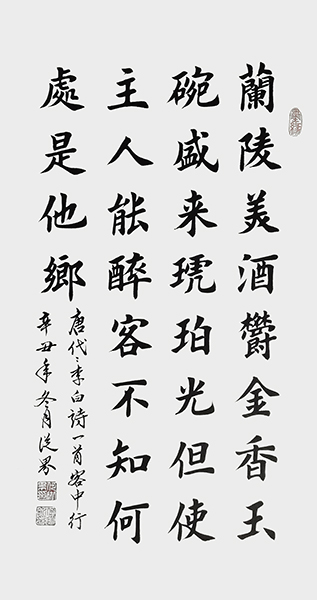 蘭陵美酒鬱金香玉
碗盛来琥珀光但使
主人能醉客不知何
處是他鄉
唐代李白詩一首客中行
辛丑年冬月